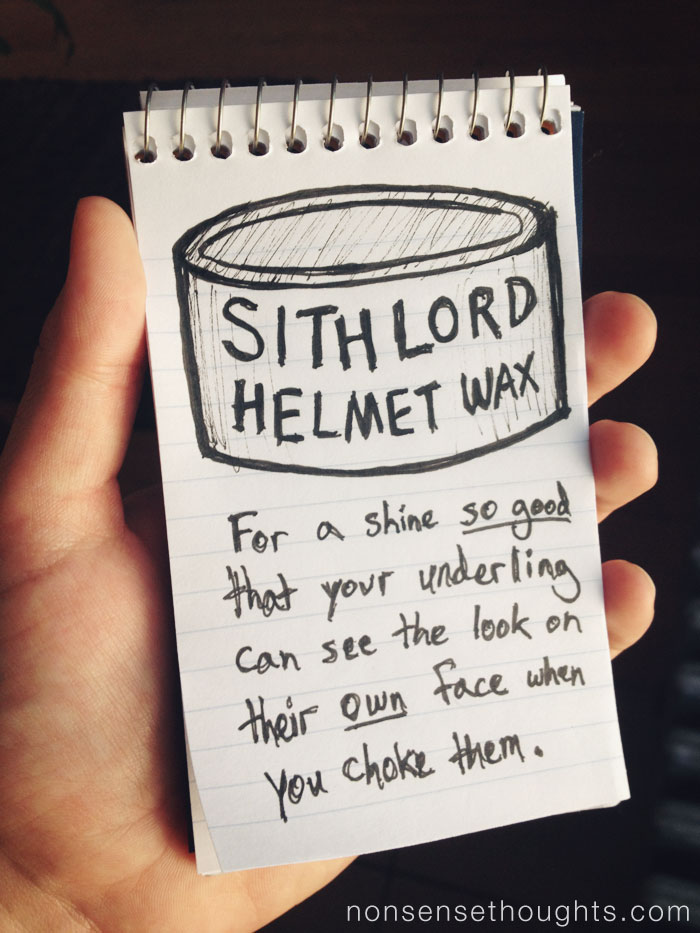 SITH LORD
HELMET WAX
For a shine so good
that your underling
can see the look on
their own face when
you choke them.
nonsensethoughts.com